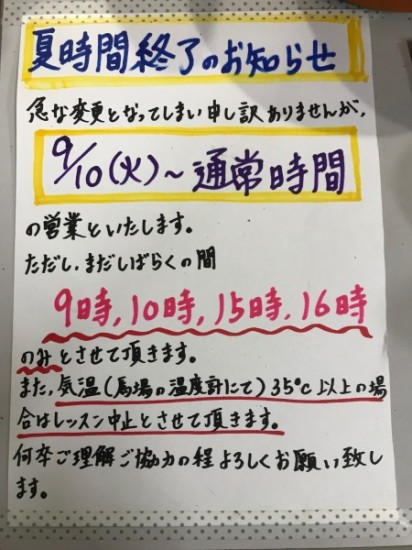 夏時間終了のお知らせ
急な変更となってしまい申し訳ありませんが、
9/10(火)～通常時間
の営業といたします。
ただし、まだしばらくの間
9時,10時,15時,16時
のみとさせて頂きます。
また、気温(馬場の温度計にて)35℃以上の場
合はレッスン中止とさせて頂きます。
何卒ご理解ご協力の程よろしくお願い致し
ます。